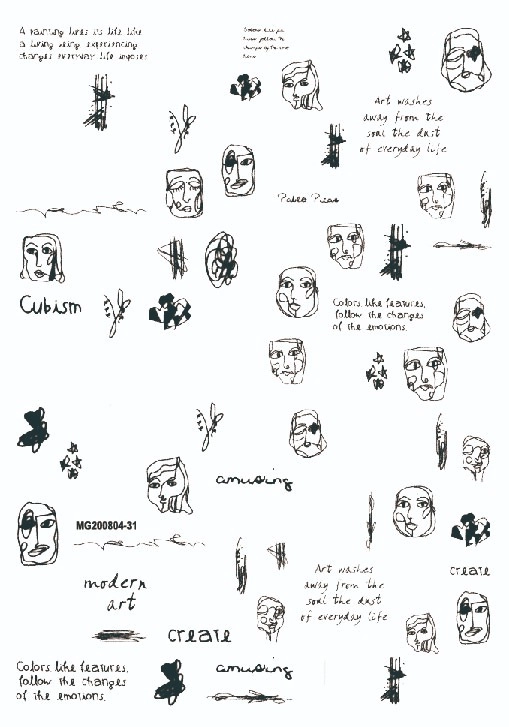 A painting lives its life like
a living being experiencing
changes everyday life imposes
Colors like features,
follow the
changes of the
Art washes
away from the
soul the dust
of everyday life
Pablo Picas
Cubism
Colors, like features,
follow the changes
of the emotions.
amusing
MG200804-31
modern
art
create
Art washes
away from the
soul the dust
of everyday life
create
Colors, like features,
follow the changes
of the emotions.
amusing